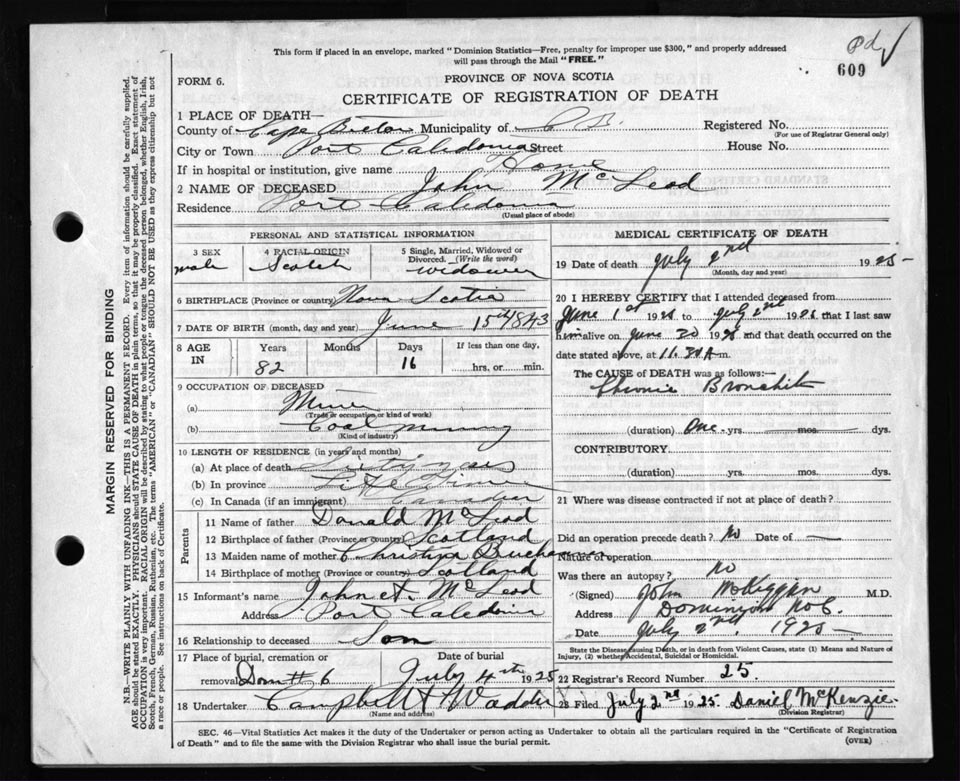 Pd ✓
609
This form if placed in an envelope, marked "Dominion Statistics—Free, penalty for improper use $300," and properly addressed
will pass through the Mail "FREE."
FORM 6.
PROVINCE OF NOVA SCOTIA
CERTIFICATE OF REGISTRATION OF DEATH
1 PLACE OF DEATH—
County of Cape Breton Municipality of C B. Registered No.
(For use of Registrar General only)
City or Town Port Caledonia Street House No.
If in hospital or institution, give name Home
2 NAME OF DECEASED John McLeod
Residence Port Caledonia
(Usual place of abode)
PERSONAL AND STATISTICAL INFORMATION
3 SEX male
4 RACIAL ORIGIN Scotch
5 Single, Married, Widowed or Divorced. (Write the word) widower
6 BIRTHPLACE (Province or country) Nova Scotia
7 DATE OF BIRTH (month, day and year) June 15th 1843
8 AGE IN Years 82 Months Days 16 If less than one day, hrs. or min.
9 OCCUPATION OF DECEASED
(a) Miner
(Trade or occupation or kind of work)
(b) Coal Mining
(Kind of industry)
10 LENGTH OF RESIDENCE (in years and months)
(a) At place of death years
(b) In province Life Time
(c) In Canada (if an immigrant) Canadian
Parents
11 Name of father Donald McLeod
12 Birthplace of father (Province or country) Scotland
13 Maiden name of mother Christina Buchanan
14 Birthplace of mother (Province or country) Scotland
15 Informant's name John A. McLeod
Address Port Caledonia
16 Relationship to deceased Son
17 Place of burial, cremation or removal Dom # 6
Date of burial July 4th 1925
18 Undertaker Campbell & Wadden
(Name and address)
MEDICAL CERTIFICATE OF DEATH
19 Date of death July 2nd 1925
(Month, day and year)
20 I HEREBY CERTIFY that I attended deceased from
June 1st 1925 to July 2nd 1925 that I last saw
him alive on June 30 1925 and that death occurred on
date stated above, at 11.30 A m.
The CAUSE of DEATH was as follows:—
Chronic Bronchitis
(duration) One yrs. mos. dys.
CONTRIBUTORY:
(duration) yrs. mos. dys.
21 Where was disease contracted if not at place of death?
Did an operation precede death? No Date of —
Nature of operation
Was there an autopsy? No
(Signed) John McKiggan M.D.
Address Dominion No 6.
Date July 2nd, 1925
State the Disease causing Death, or in death from Violent Causes, state (1) Means and Nature of
Injury, (2) whether Accidental, Suicidal or Homicidal.
22 Registrar's Record Number 25.
23 Filed July 2nd 1925. Daniel McKenzie
(Division Registrar)
SEC. 46—Vital Statistics Act makes it the duty of the Undertaker or person acting as Undertaker to obtain all the particulars required in the "Certificate of Registration
of Death" and to file the same with the Division Registrar who shall issue the burial permit.
(OVER)
MARGIN RESERVED FOR BINDING
N.B.—WRITE PLAINLY WITH UNFADING INK—THIS IS A PERMANENT RECORD. Every item of information should be carefully supplied.
AGE should be stated EXACTLY. PHYSICIANS should STATE CAUSE OF DEATH in plain terms, so that it may be properly classified. Exact statement of
OCCUPATION is very important. RACIAL ORIGIN will be described by stating to what people or tongue the deceased person belonged, whether English, Irish,
Scotch, French, German, Russian, Ruthenian, etc. The terms "AMERICAN" or "CANADIAN" SHOULD NOT BE USED as they express citizenship but not
a race or people. See instructions on back of Certificate.